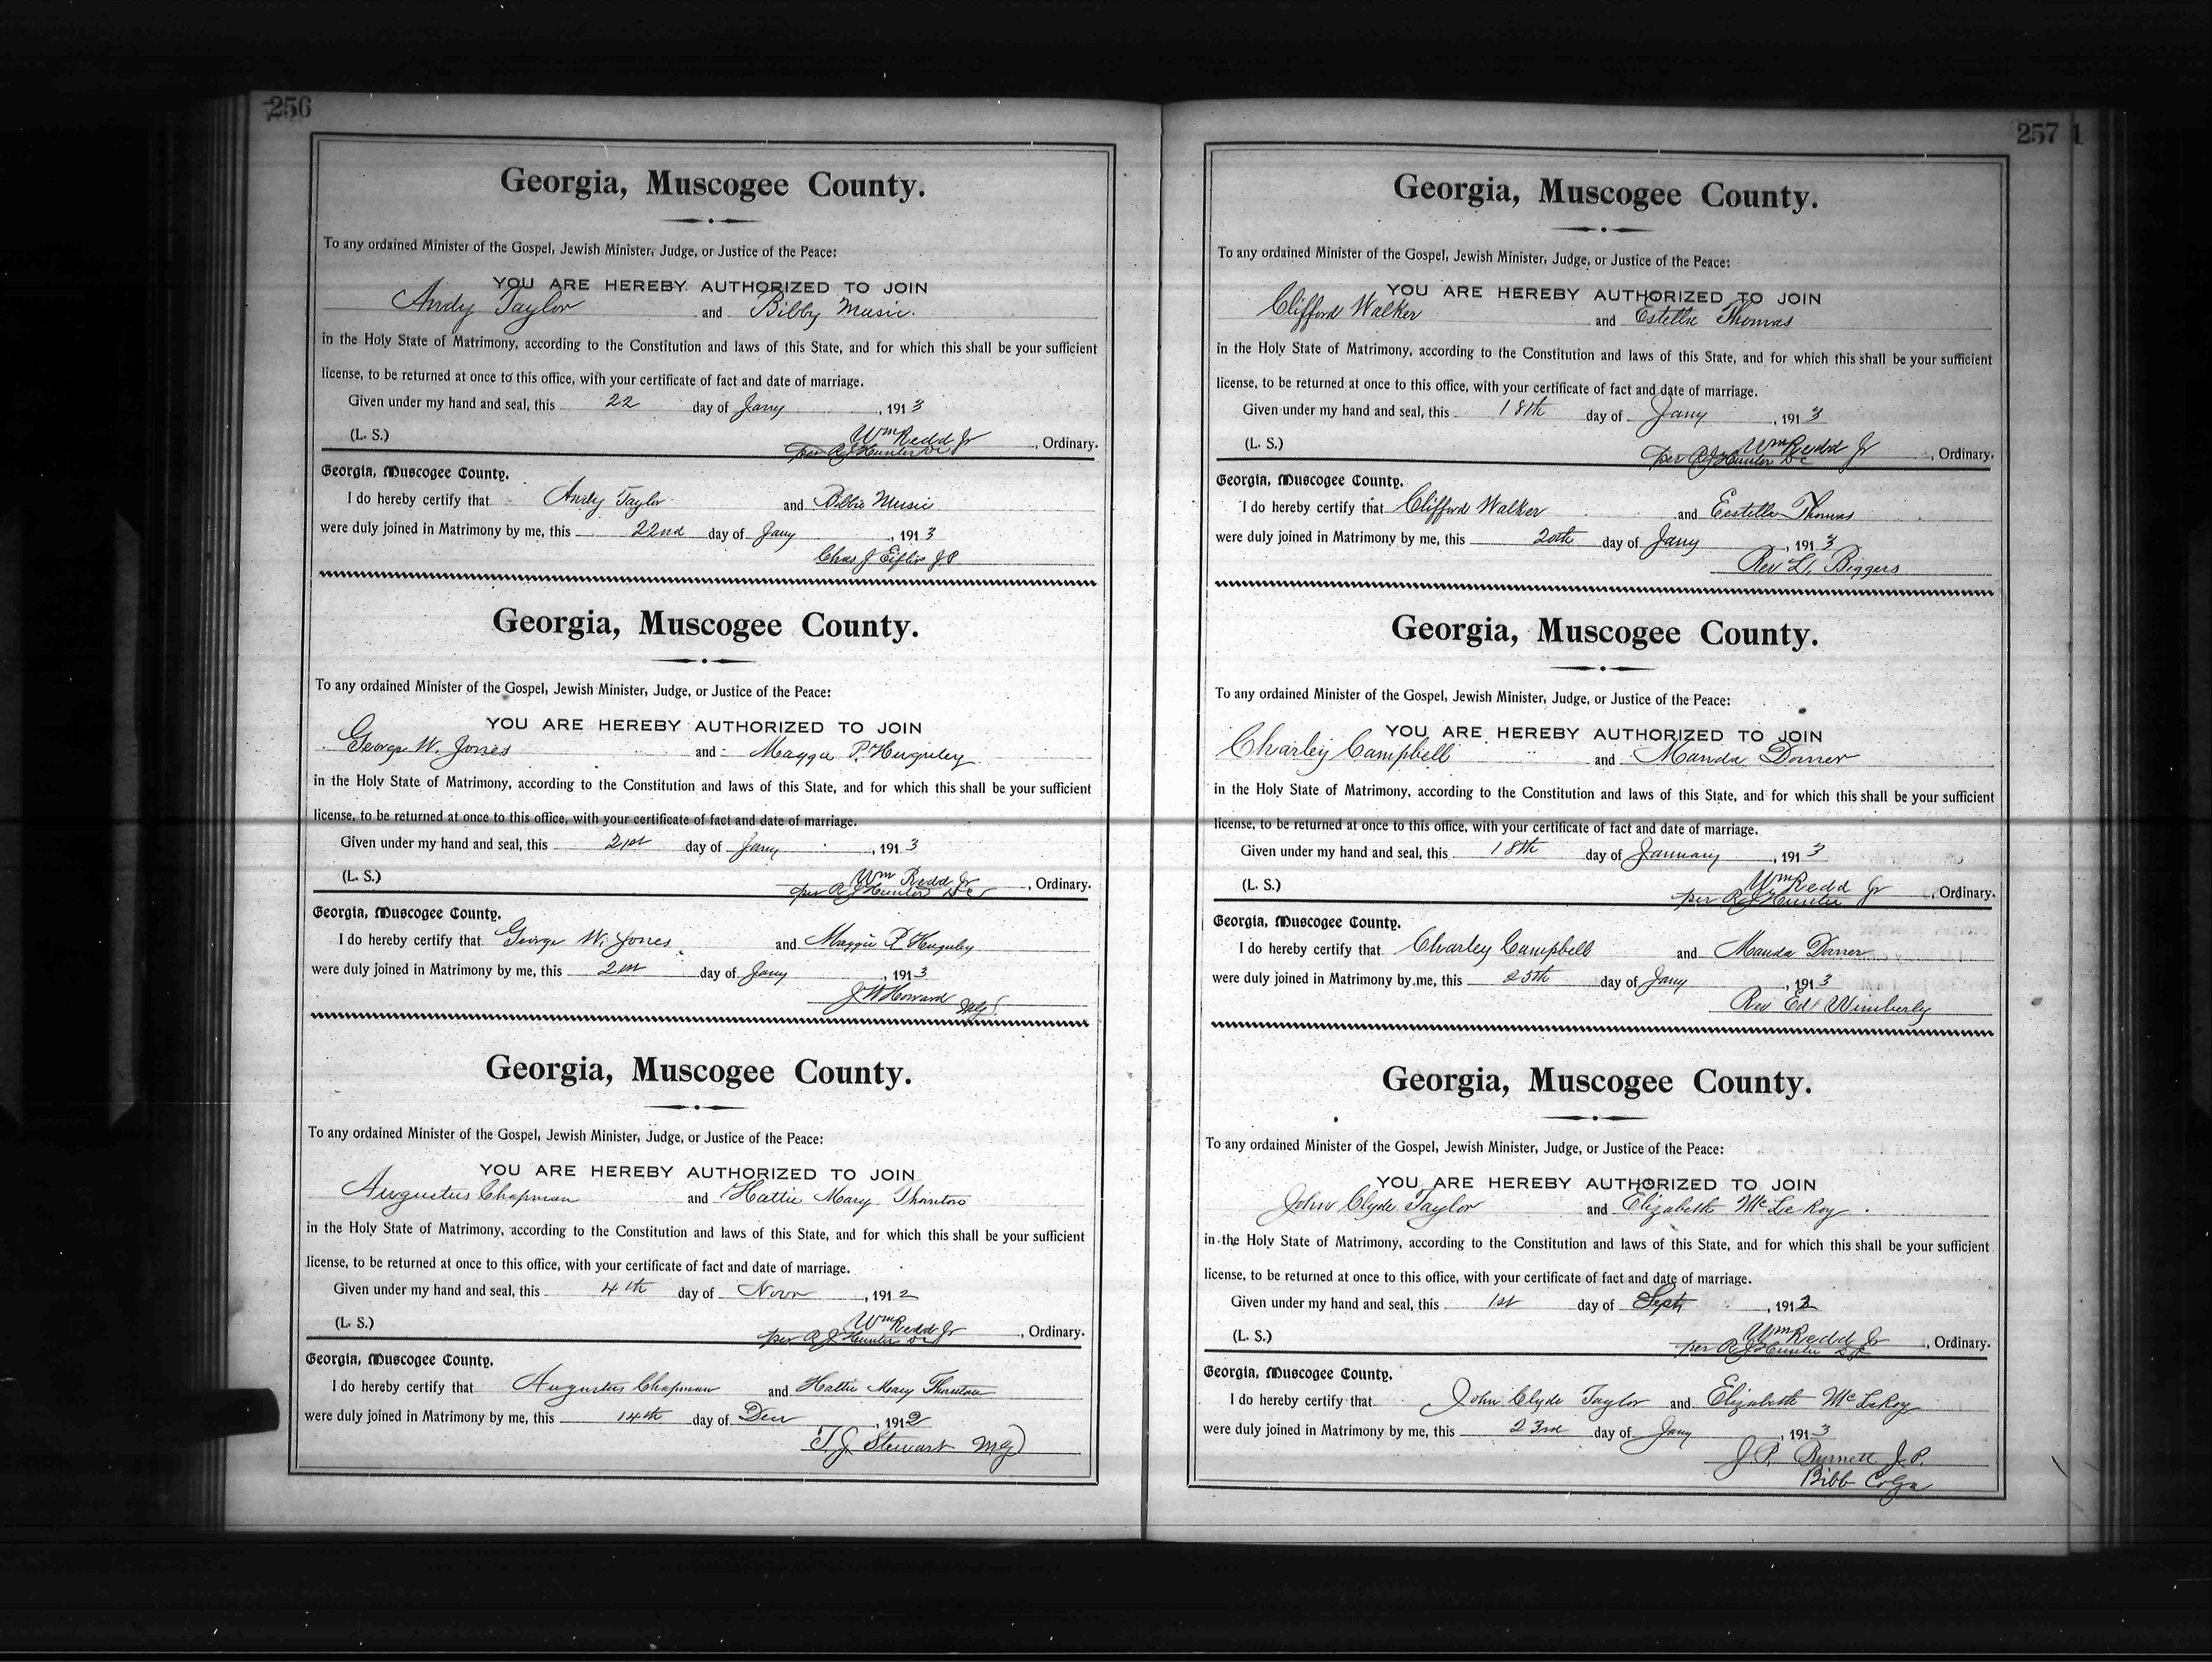 256
Georgia, Muscogee County.
To any ordained Minister of the Gospel, Jewish Minister, Judge, or Justice of the Peace:
YOU ARE HEREBY AUTHORIZED TO JOIN
Andy Taylor and Bibby Music.
in the Holy State of Matrimony, according to the Constitution and laws of this State, and for which this shall be your sufficient
license, to be returned at once to this office, with your certificate of fact and date of marriage.
Given under my hand and seal, this 22 day of Jany, 1913
(L. S.) Wm Redd Jr, Ordinary.
per R J Hunter DC
Georgia, Muscogee County.
I do hereby certify that Andy Taylor and Bibbie Music
were duly joined in Matrimony by me, this 22nd day of Jany, 1913
Chas J J.P
Georgia, Muscogee County.
To any ordained Minister of the Gospel, Jewish Minister, Judge, or Justice of the Peace:
YOU ARE HEREBY AUTHORIZED TO JOIN
George W. Jones and Maggie P. Huguley
in the Holy State of Matrimony, according to the Constitution and laws of this State, and for which this shall be your sufficient
license, to be returned at once to this office, with your certificate of fact and date of marriage.
Given under my hand and seal, this 21st day of Jany, 1913
(L. S.) Wm Redd Jr, Ordinary.
per R J Hunter DC
Georgia, Muscogee County.
I do hereby certify that George W. Jones and Maggie P Huguley
were duly joined in Matrimony by me, this 21st day of Jany, 1913
J W Howard MG
Georgia, Muscogee County.
To any ordained Minister of the Gospel, Jewish Minister, Judge, or Justice of the Peace:
YOU ARE HEREBY AUTHORIZED TO JOIN
Augustus Chapman and Hattie Mary Thornton
in the Holy State of Matrimony, according to the Constitution and laws of this State, and for which this shall be your sufficient
license, to be returned at once to this office, with your certificate of fact and date of marriage.
Given under my hand and seal, this 4th day of Novr, 1912
(L. S.) Wm Redd Jr, Ordinary.
per R J Hunter DC
Georgia, Muscogee County.
I do hereby certify that Augustus Chapman and Hattie Mary Thornton
were duly joined in Matrimony by me, this 14th day of Decr, 1912
T. J. Stewart MG
257 1
Georgia, Muscogee County.
To any ordained Minister of the Gospel, Jewish Minister, Judge, or Justice of the Peace:
YOU ARE HEREBY AUTHORIZED TO JOIN
Clifford Walker and Estella Thomas
in the Holy State of Matrimony, according to the Constitution and laws of this State, and for which this shall be your sufficient
license, to be returned at once to this office, with your certificate of fact and date of marriage.
Given under my hand and seal, this 18th day of Jany, 1913
(L. S.) Wm Redd Jr, Ordinary.
per R J Hunter DC
Georgia, Muscogee County.
I do hereby certify that Clifford Walker and Eestella Thomas
were duly joined in Matrimony by me, this 20th day of Jany, 1913
Rev L. Biggers
Georgia, Muscogee County.
To any ordained Minister of the Gospel, Jewish Minister, Judge, or Justice of the Peace:
YOU ARE HEREBY AUTHORIZED TO JOIN
Charley Campbell and Manda Dorner
in the Holy State of Matrimony, according to the Constitution and laws of this State, and for which this shall be your sufficient
license, to be returned at once to this office, with your certificate of fact and date of marriage.
Given under my hand and seal, this 18th day of January, 1913
(L. S.) Wm Redd Jr, Ordinary.
per R J Hunter
Georgia, Muscogee County.
I do hereby certify that Charley Campbell and Manda Dorner
were duly joined in Matrimony by me, this 25th day of Jany, 1913
Rev Ed Wimberly
Georgia, Muscogee County.
To any ordained Minister of the Gospel, Jewish Minister, Judge, or Justice of the Peace:
YOU ARE HEREBY AUTHORIZED TO JOIN
John Clyde Taylor and Elizabeth McLeRoy.
in the Holy State of Matrimony, according to the Constitution and laws of this State, and for which this shall be your sufficient
license, to be returned at once to this office, with your certificate of fact and date of marriage.
Given under my hand and seal, this 1st day of Sept, 1912
(L. S.) Wm Redd Jr, Ordinary.
per R J Hunter DC
Georgia, Muscogee County.
I do hereby certify that John Clyde Taylor and Elizabeth McLeRoy
were duly joined in Matrimony by me, this 23rd day of Jany, 1913
J. P. Burnett J.P.
Bibb Co Ga